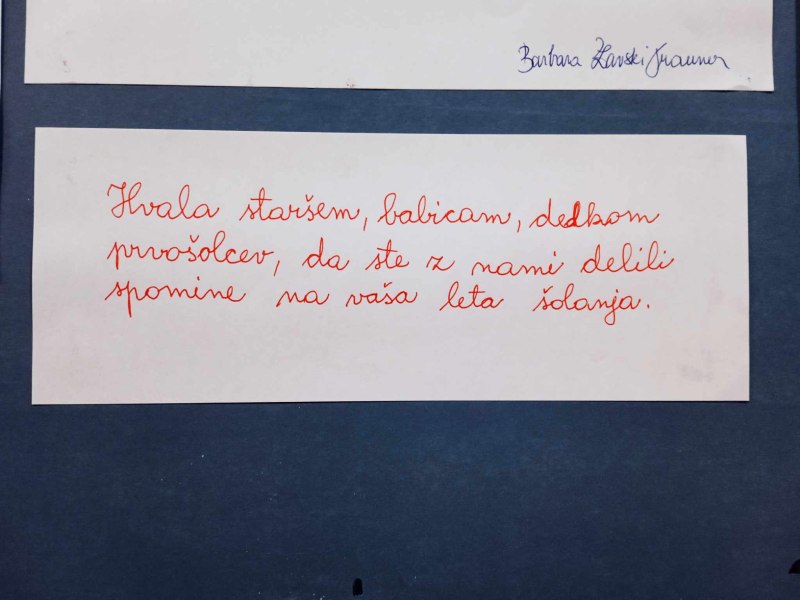 Barbara
Hvala staršem, babicam, dedkom
prvošolcev, da ste z nami delili
spomine na vaša leta šolanja.